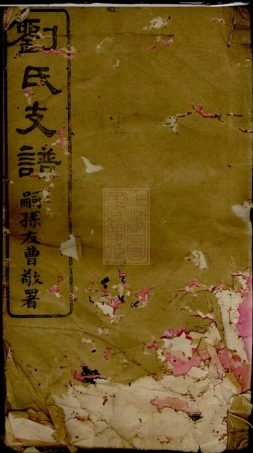 劉氏支譜
嗣孫友曹敬署